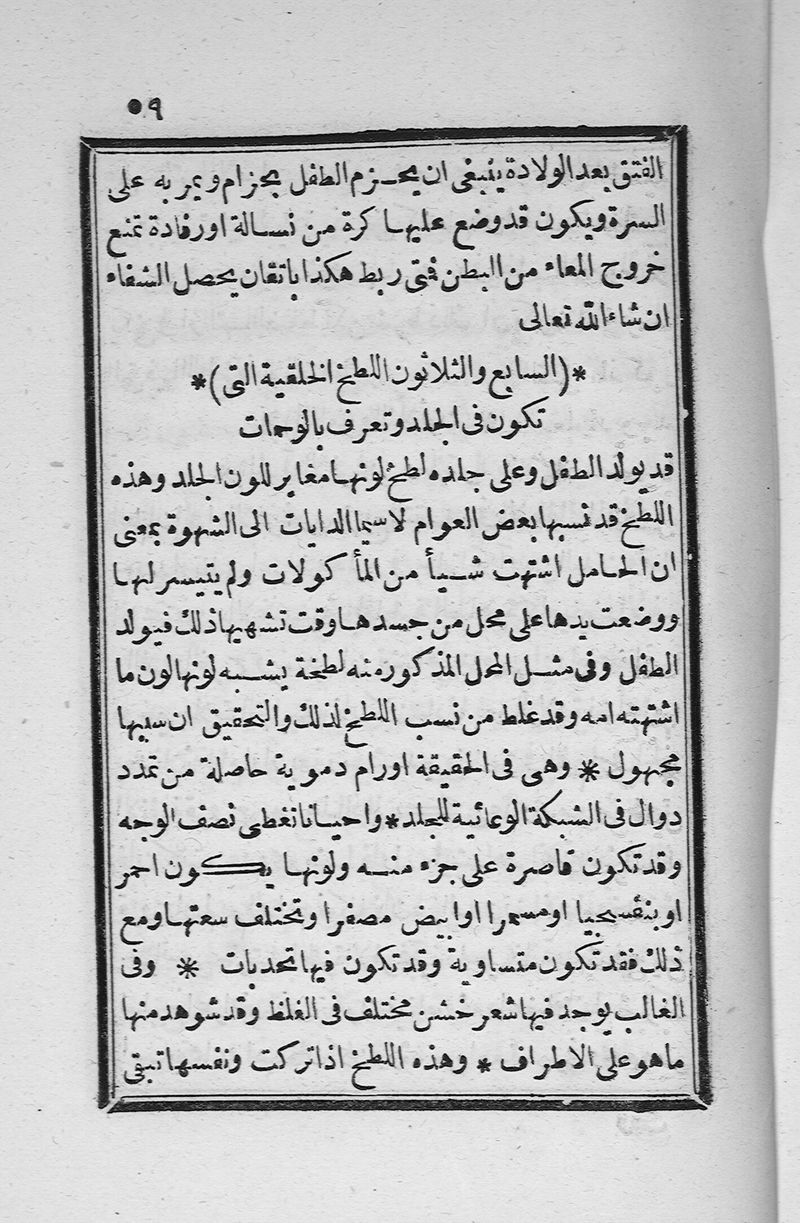 ٥٩
الفتق بعد الولادة ينبغى ان يحزم الطفل بحزام ويمر به على
السرة ويكون قد وضع عليها كرة من نسالة او رفادة تمنع
خروج المعاء من البطن فمتى ربط هكذا باتقان يحصل الشفاء
ان شاء الله تعالى
*(السابع والثلاثون اللطخ الخلقية التى)*
تكون فى الجلد وتعرف بالوحمات
قد يولد الطفل وعلى جلده لطخ لونها مغاير للون الجلد وهذه
اللطخ قد نسبها بعض العوام لاسيما الدايات الى الشهوة بمعنى
ان الحامل اشتهت شيأ من المأكولات ولم يتيسر لها
ووضعت يدها على محل من جسدها وقت تشهيها ذلك فيولد
الطفل وفى مثل المحل المذكور منه لطخة يشبه لونها لون ما
اشتهته امه وقد غلط من نسب اللطخ لذلك والتحقيق ان سببها
مجهول * وهى فى الحقيقة اورام دموية حاصلة من تمدد
دوال فى الشبكة الوعائية للجلد * واحيانا تغطى نصف الوجه
وقد تكون قاصرة على جزء منه ولونها يكون احمر
او بنفسجيا او مسمرا او ابيض مصفرا وتختلف سعتها ومع
ذلك فقد تكون متساوية وقد تكون فيها تحدبات * وفى
الغالب يوجد فيها شعر خشن مختلف فى الغلظ وقد شوهد منها
ما هو على الاطراف * وهذه اللطخ اذا تركت ونفسها تبقى